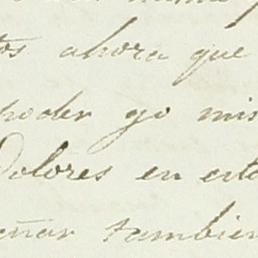 tos ahora que
poder yo mis
Dolores en esta
eñar tambien